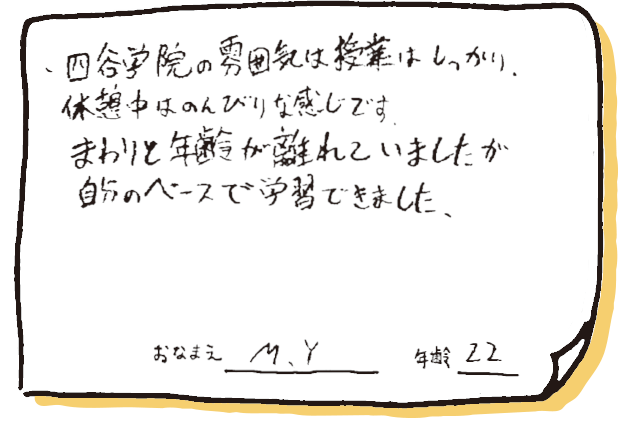 ・四谷学院の雰囲気は授業はしっかり、
休憩中はのんびりな感じです。
まわりと年齢が離れていましたが
自分のペースで学習できました。
おなまえ M.Y 年齢 22